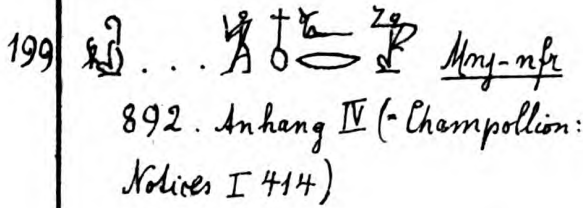 199 . . . Mnj-nfr
892. Anhang IV (= Champollion:
Notices I 414)